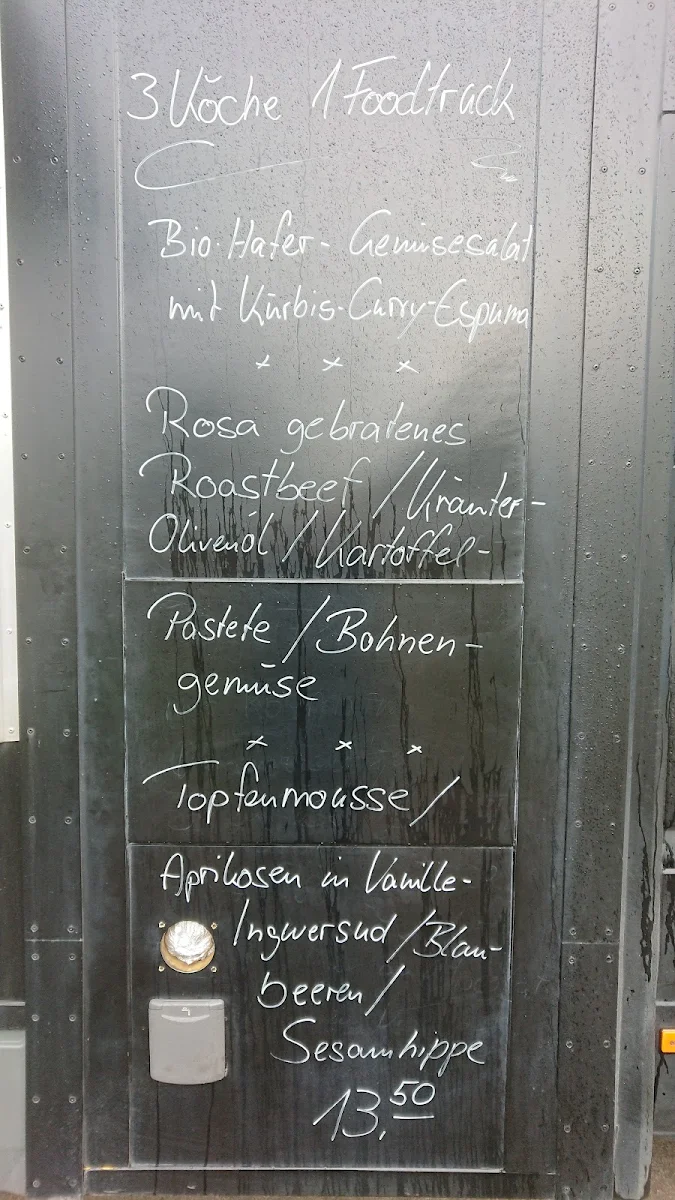 3 Köche 1 Foodtruck
Bio-Hafer-Gemüsesalat
mit Kürbis-Curry-Espuma
x x x
Rosa gebratenes
Roastbeef / Kräuter-
Olivenöl / Kartoffel-
Pastete / Bohnen-
gemüse
x x x
Topfenmousse /
Aprikosen in Vanille-
Ingwersud / Blau-
beeren /
Sesamhippe
13,50